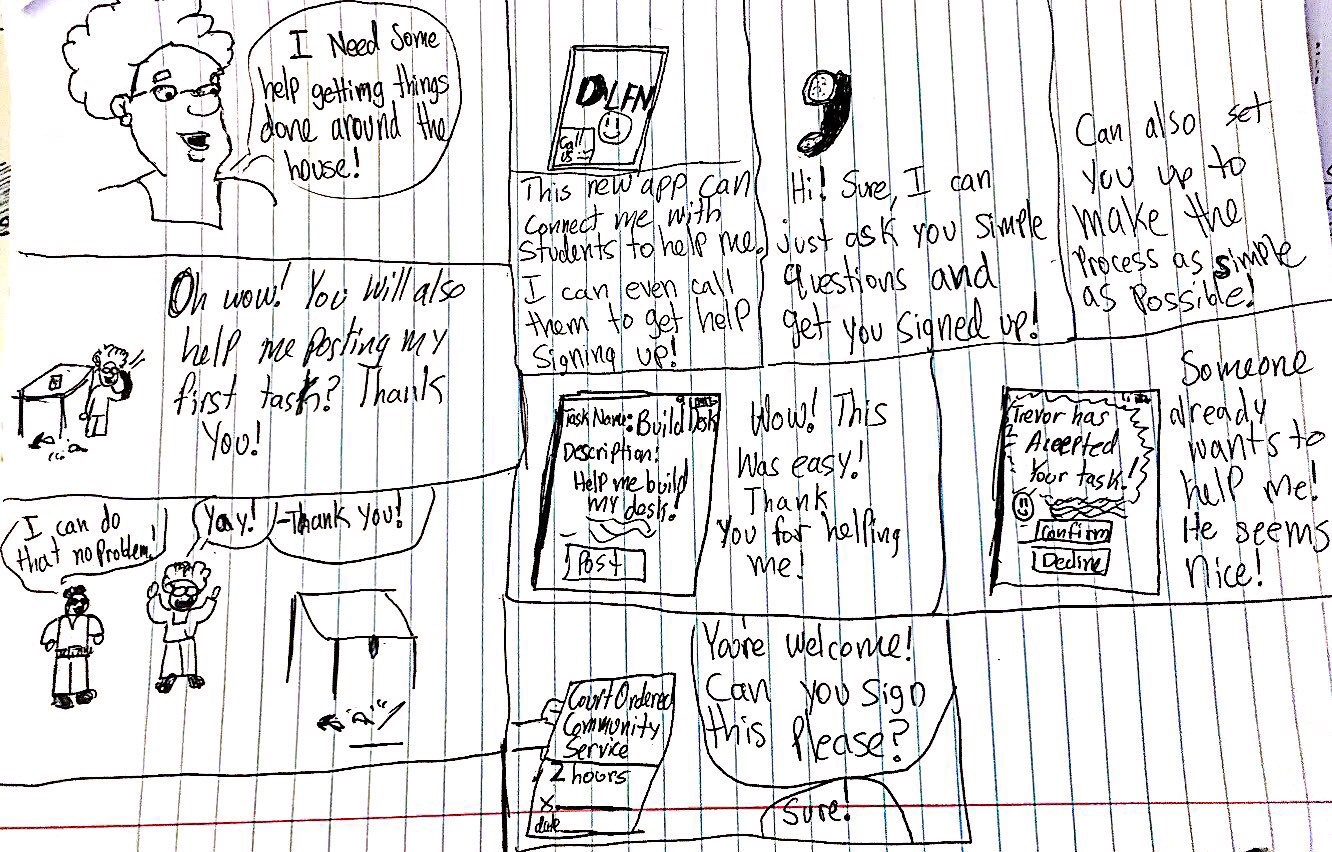 I Need Some
help getting things
done around the
house!
DLFN
Call
us
This new app can
connect me with
students to help me.
I can even call
them to get help
signing up!
Hi! Sure, I can
just ask you simple
questions and
get you signed up!
Can also set
you up to
make the
process as simple
as possible!
Oh wow! You will also
help me posting my
first task? Thank
you!
Task Name: Build Desk
Description:
Help me build
my desk!
Post
Wow! This
was easy!
Thank
you for helping
me!
Trevor has
Accepted
Your task!
Confirm
Decline
Someone
already
wants to
help me!
He seems
nice!
I can do
that no problem!
Yay!
-Thank you!
Court Ordered
Community
Service
2 hours
x
date
You're welcome!
Can you sign
this please?
Sure!